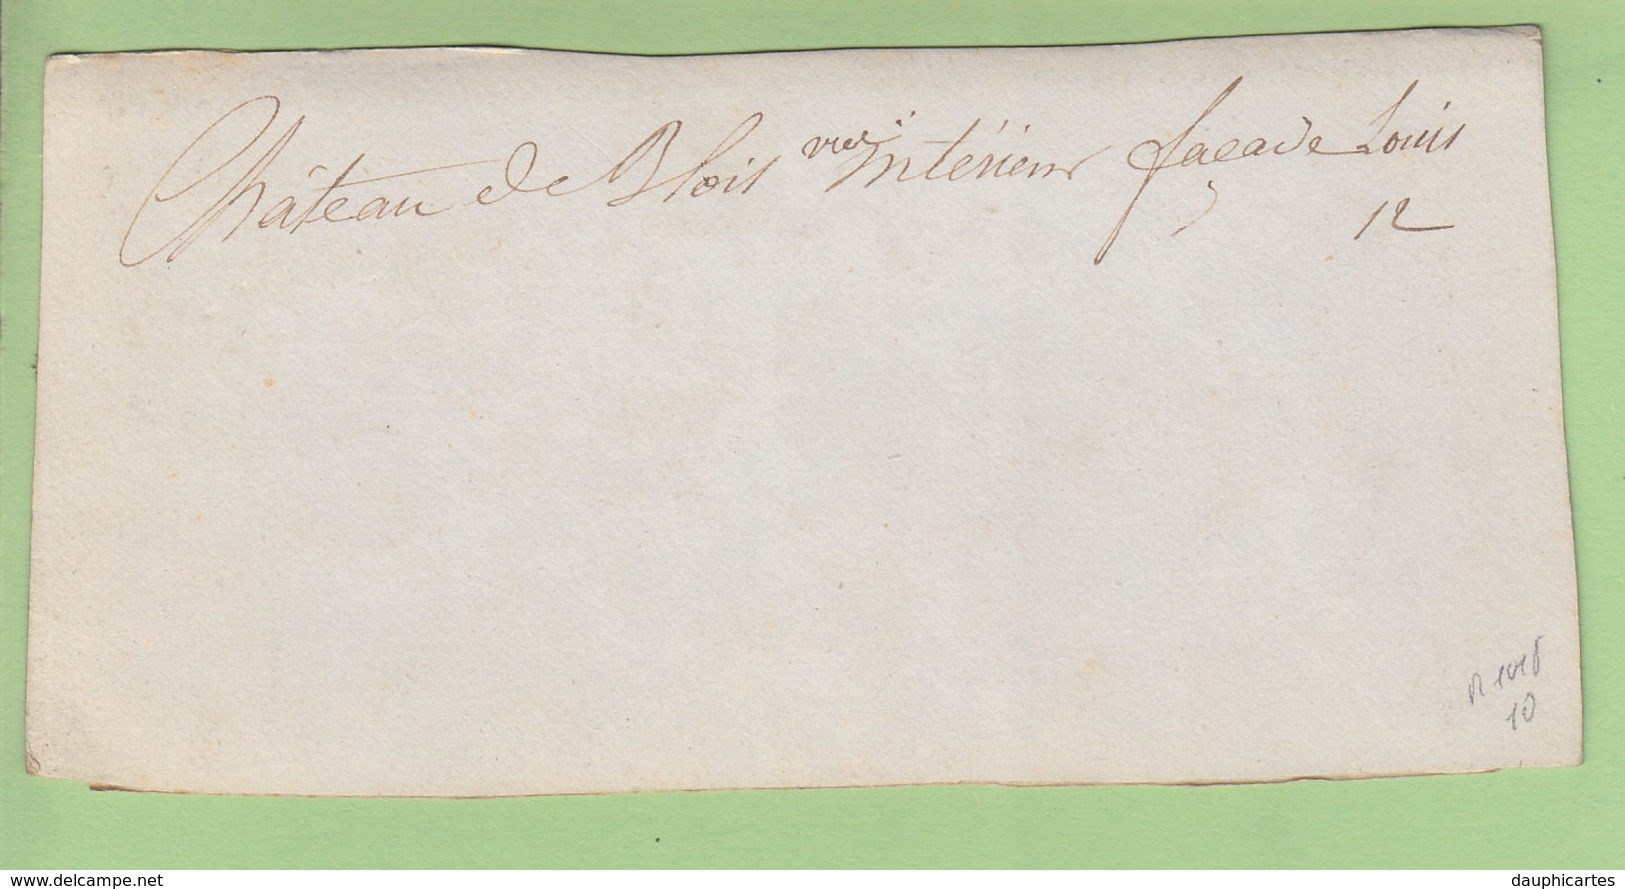 Château de Blois vue intérieur façade Louis
12
10
www.delcampe.net
dauphicartes